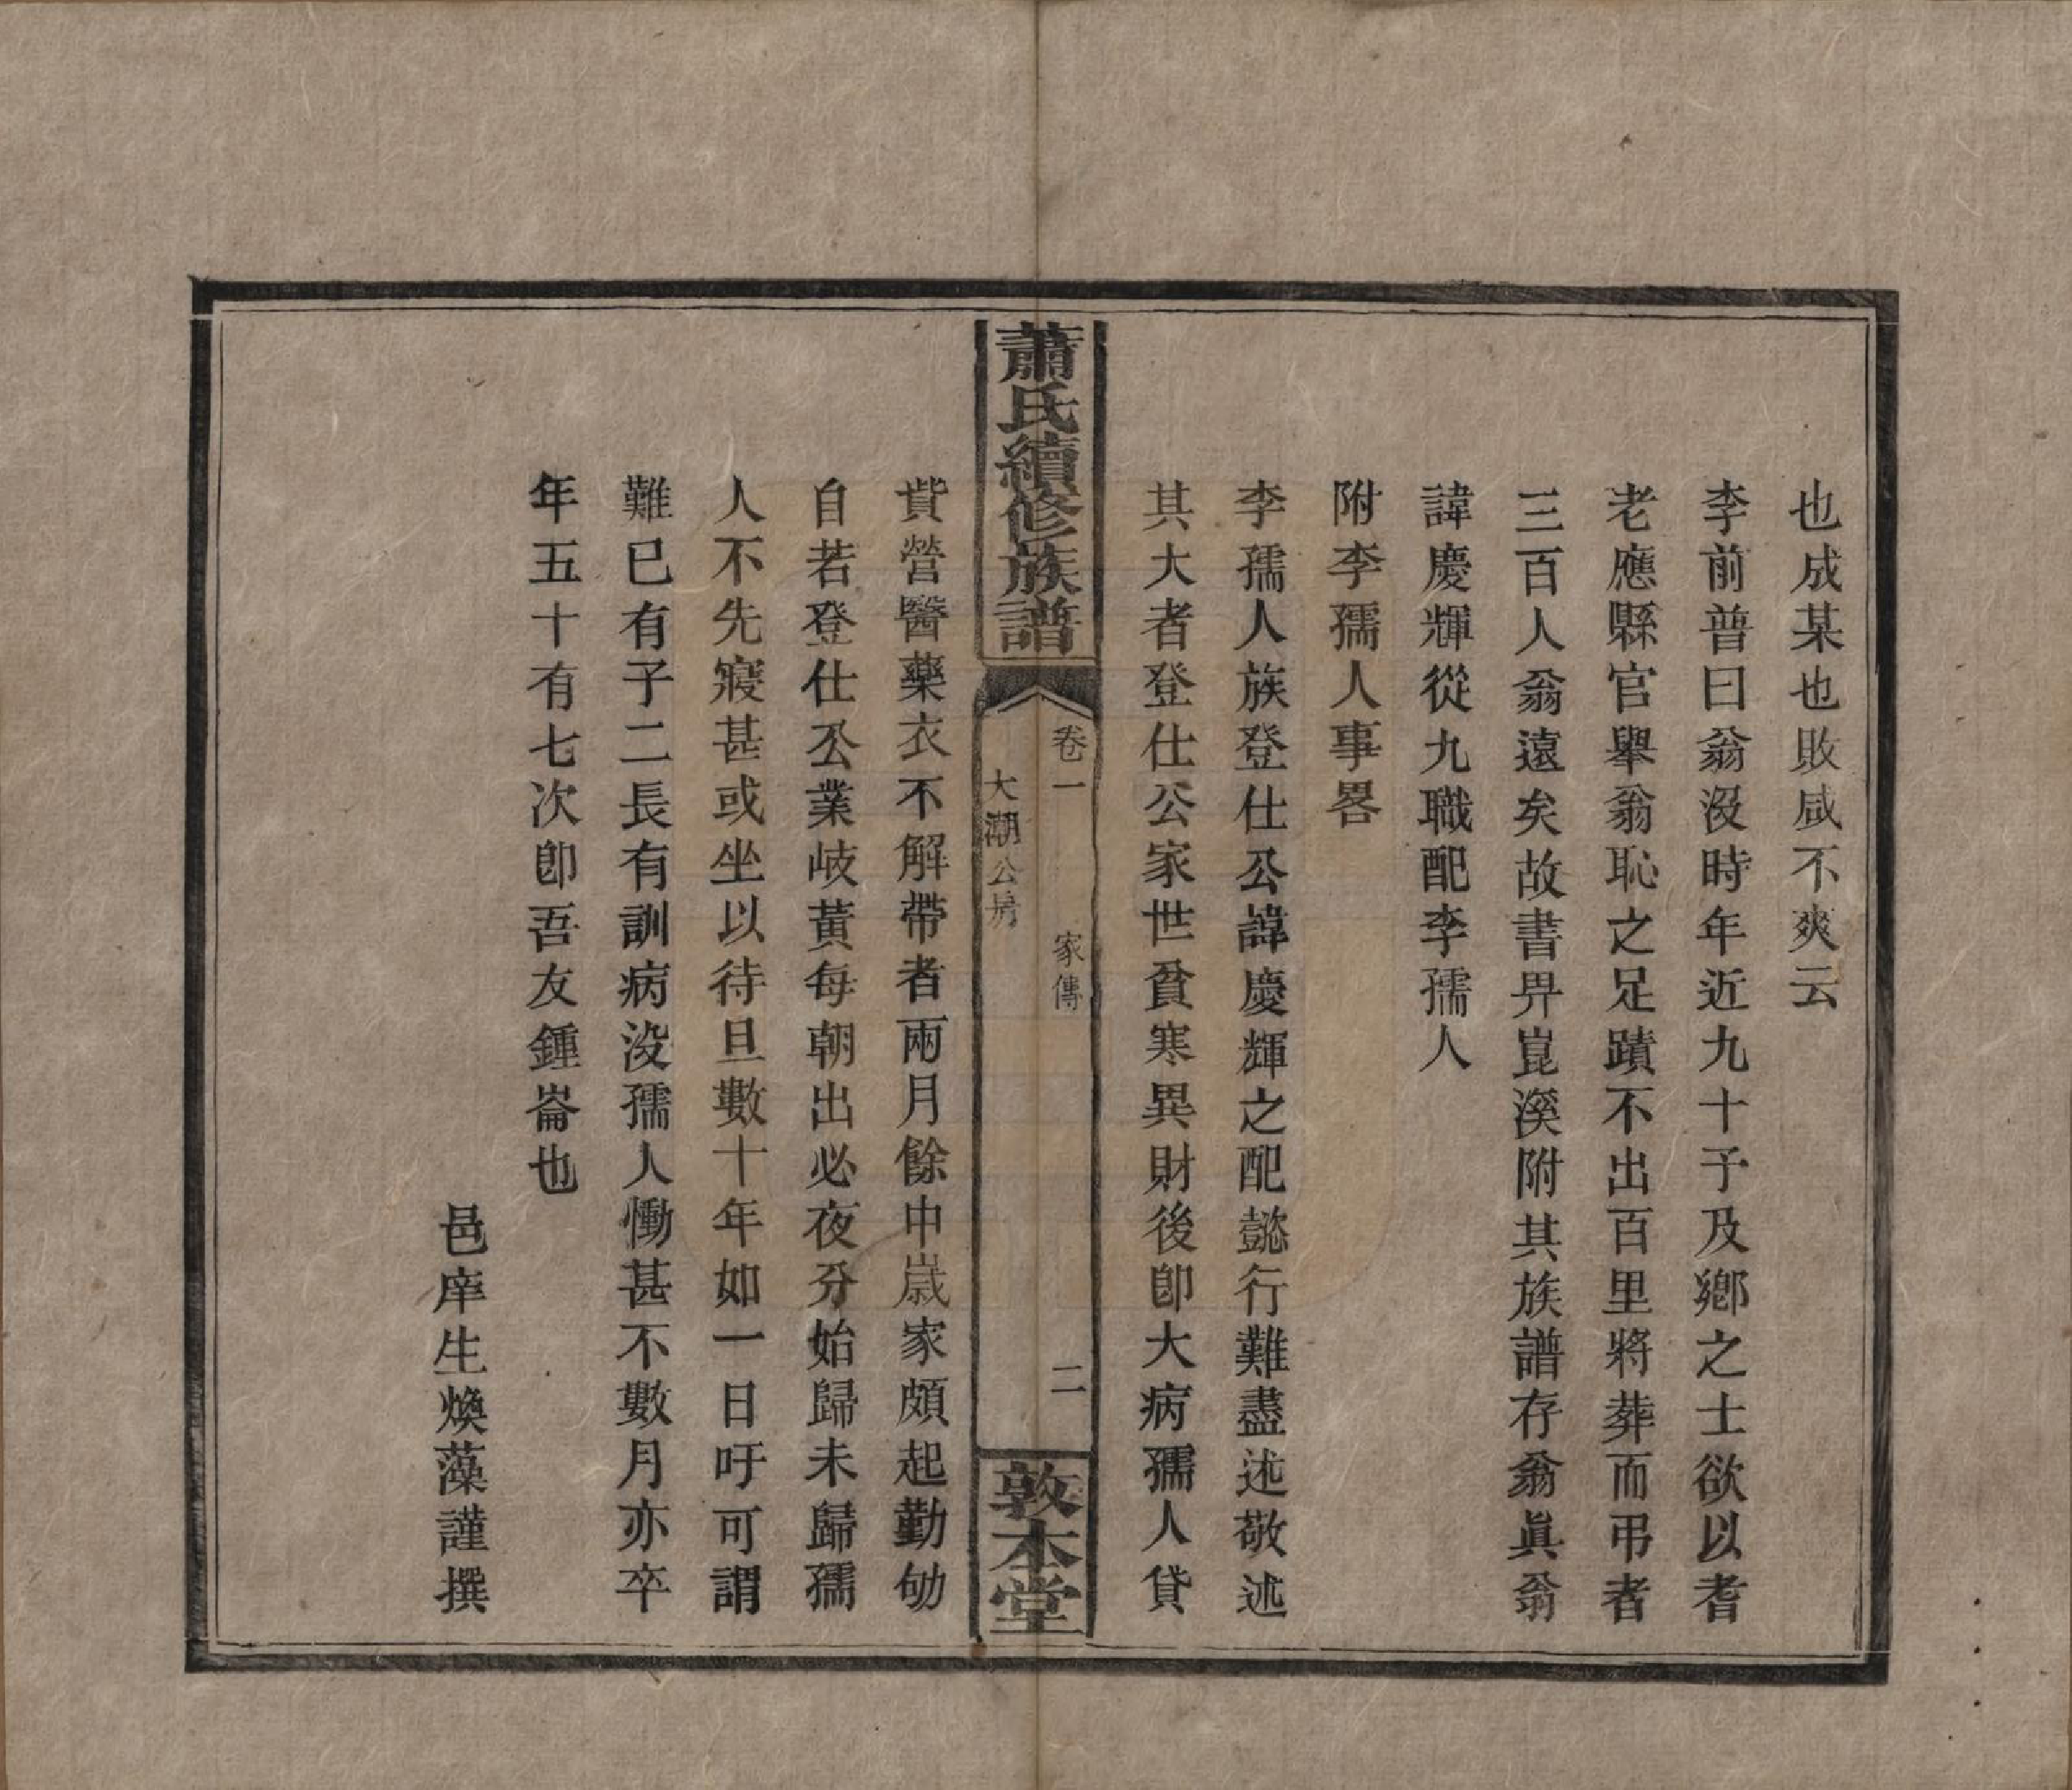 也成某也敗咸不爽云
李前普曰翁沒時年近九十予及鄉之士欲以耆
老應縣官舉翁恥之足蹟不出百里將葬而弔者
三百人翁遠矣故書畀崑溪附其族譜存翁眞翁
諱慶輝從九職配李孺人
附李孺人事畧
李孺人族登仕公諱慶輝之配懿行難盡述敬述
其大者登仕公家世貧寒異財後卽大病孺人貸
蕭氏續修族譜
卷一
家傳
二
大潮公房
敦本堂
貲營醫藥衣不解帶者兩月餘中歲家頗起勤劬
自若登仕公業岐黃每朝出必夜分始歸未歸孺
人不先寢甚或坐以待旦數十年如一日吁可謂
難已有子二長有訓病沒孺人慟甚不數月亦卒
年五十有七次卽吾友鍾崙也
邑庠生煥藻謹撰